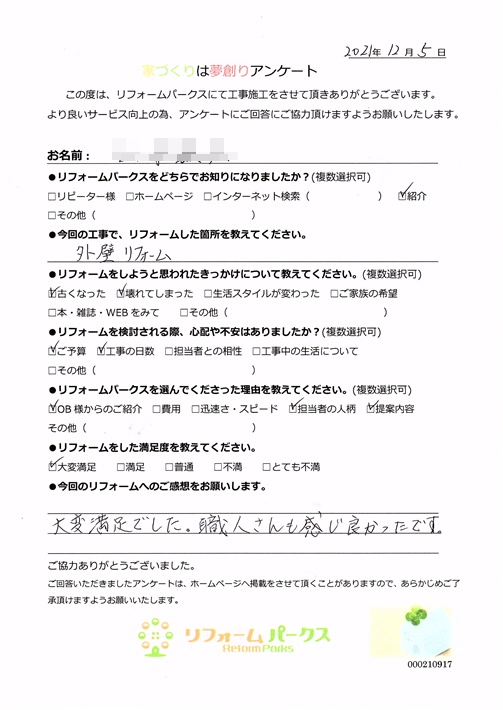 2021年 12月 5日
家づくりは夢創りアンケート
この度は、リフォームパークスにて工事施工をさせて頂きありがとうございます。
より良いサービス向上の為、アンケートにご回答にご協力頂けますようお願いしたします。
お名前：
●リフォームパークスをどちらでお知りになりましたか？(複数選択可)
□リピーター様 □ホームページ □インターネット検索（ ） ☑紹介
□その他（ ）
●今回の工事で、リフォームした箇所を教えてください。
外壁 リフォーム
●リフォームをしようと思われたきっかけについて教えてください。(複数選択可)
☑古くなった ☑壊れてしまった □生活スタイルが変わった □ご家族の希望
□本・雑誌・WEBをみて □その他（ ）
●リフォームを検討される際、心配や不安はありましたか？(複数選択可)
☑ご予算 ☑工事の日数 □担当者との相性 □工事中の生活について
□その他（ ）
●リフォームパークスを選んでくださった理由を教えてください。(複数選択可)
☑OB様からのご紹介 □費用 □迅速さ・スピード ☑担当者の人柄 ☑提案内容
その他（ ）
●リフォームをした満足度を教えてください。
☑大変満足 □満足 □普通 □不満 □とても不満
●今回のリフォームへのご感想をお願いします。
大変満足でした。職人さんも感じ良かったです。
ご協力ありがとうございました。
ご回答いただきましたアンケートは、ホームページへ掲載をさせて頂くことがありますので、あらかじめご了
承頂けますようお願いいたします。
リフォームパークス
Reform Parks
000210917